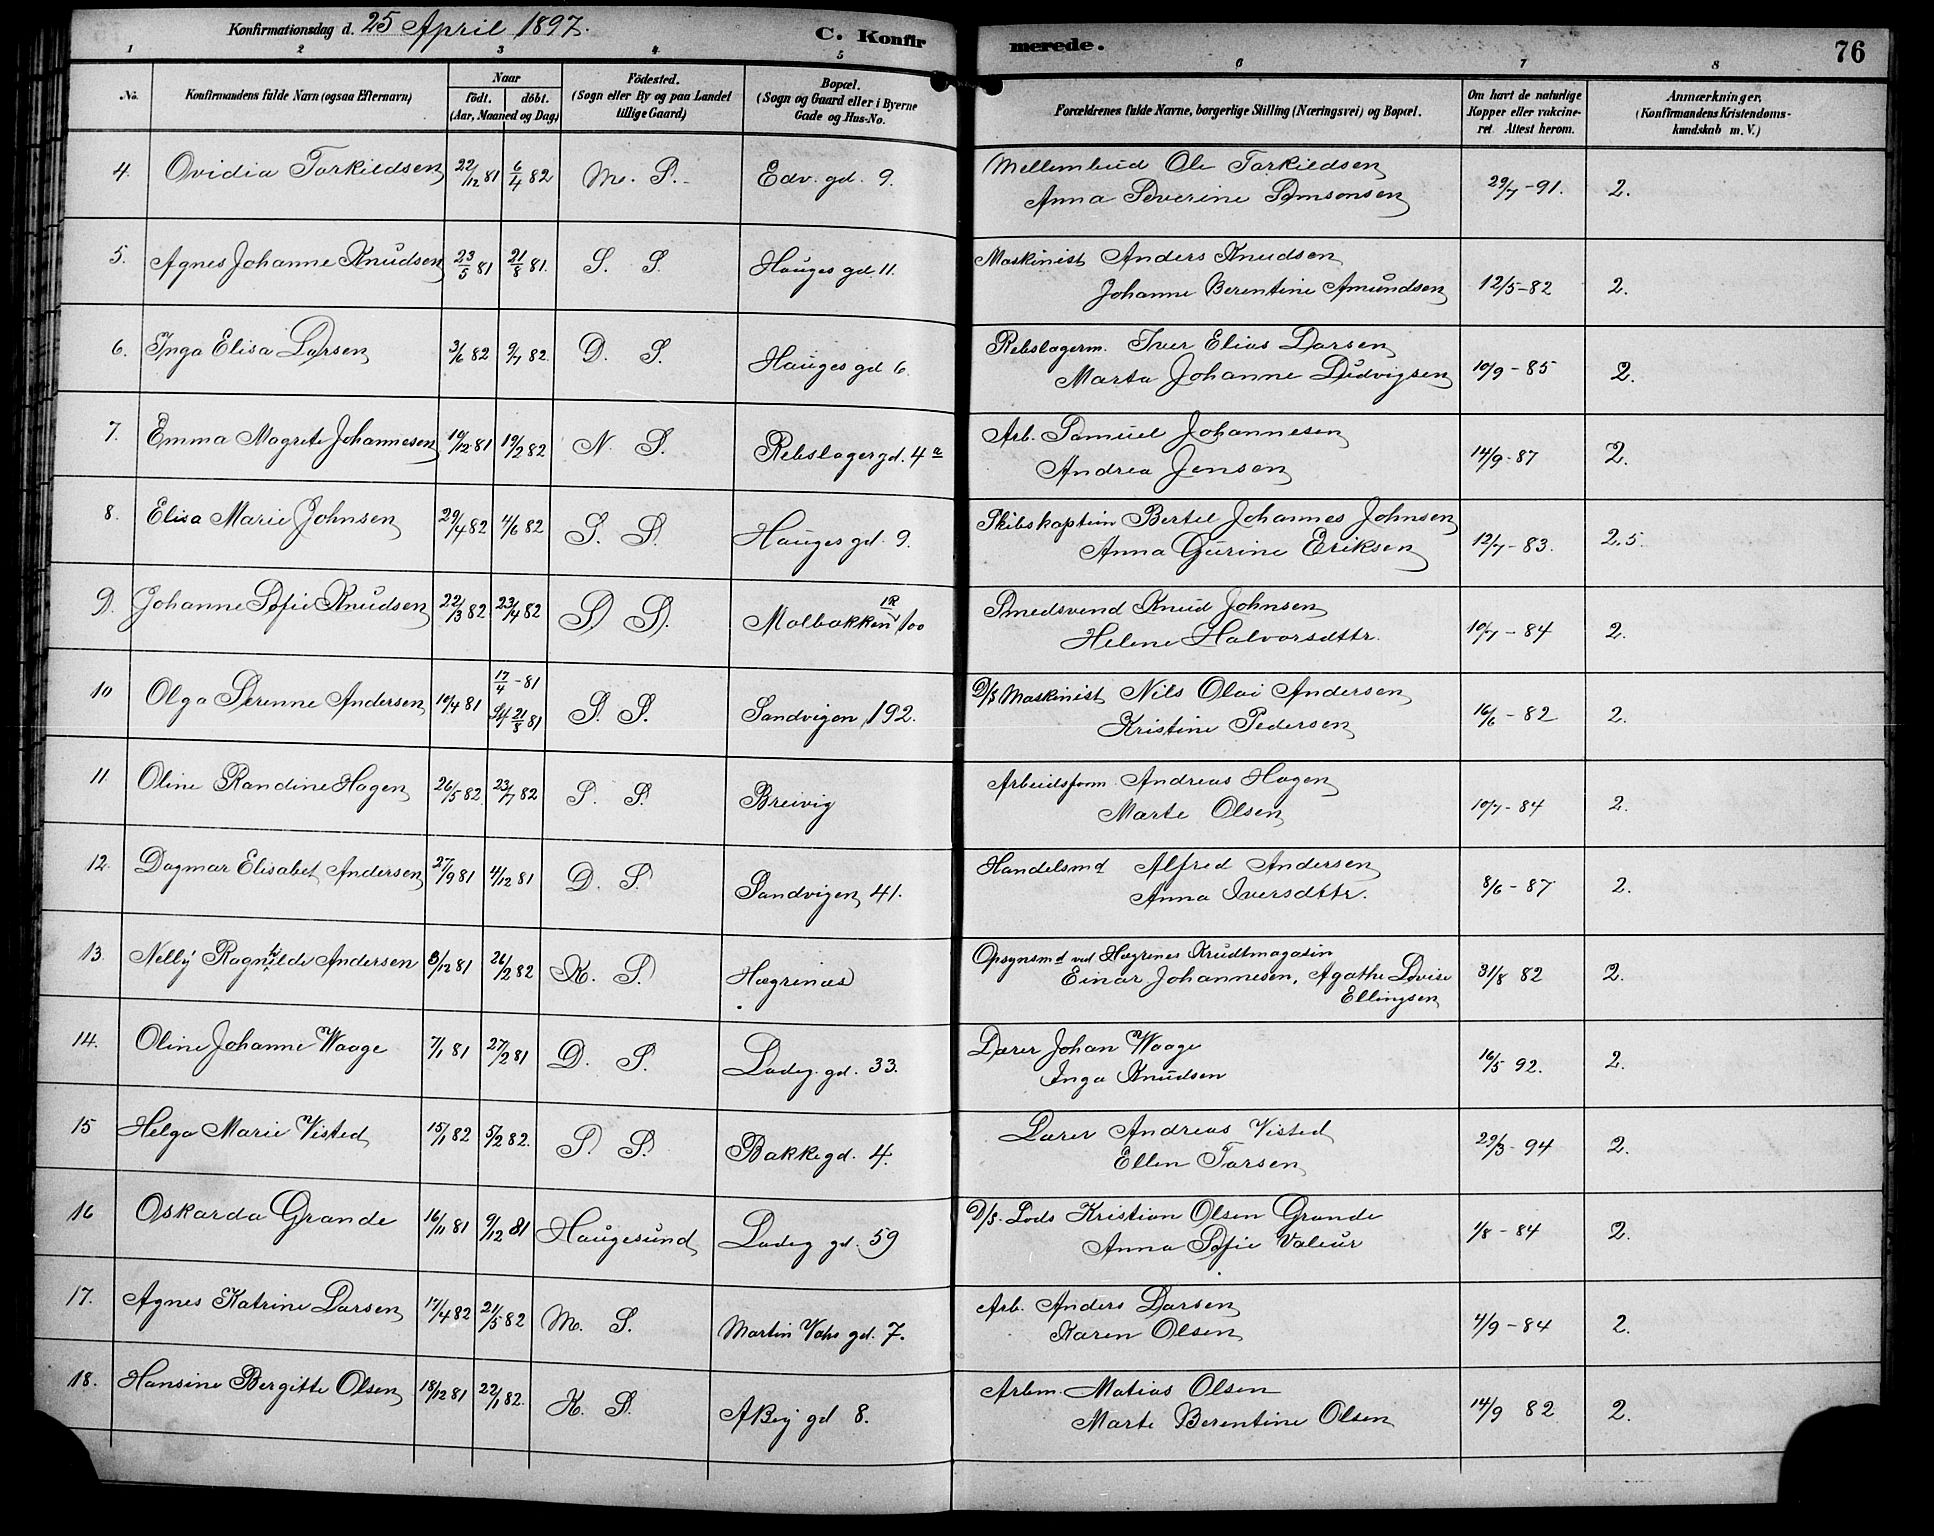 Konfirmationsdag d. 25 April 1897. C. Konfir merede. 76
1 2 3 4 5 6 7 8
No. Konfirmandens fulde Navn (ogsaa Efternavn) Naar födt. döbt. (Aar, Maaned og Dag) Födested. (Sogn eller By og paa Landet tillige Gaard) Bopæl. (Sogn og Gaard eller i Byerne Gade og Hus-No. Forældrenes fulde Navne, borgerlige Stilling (Næringsvei) og Bopæl. Om havt de naturlige Kopper eller vakcineret. Attest herom. Anmærkninger. (Konfirmandens Kristendomskundskab m. V.)
4. Ovidia Torkildsen 22/12 81 6/4 82 M. S. Edv. gd. 9. Mellembud Ole Torkildsen 29/7-91. 2.
Anna Severine Samsonsen
5. Agnes Johanne Knudsen 23/5 81 21/8 81. S. S. Hauges gd. 11. Maskinist Anders Knudsen
Johanne Berentine Amundsen 12/5-82 2.
6. Inga Elisa Larsen 3/6 82 9/7 82 D. S. Hauges gd 6. Rebslagerm. Iver Elias Larsen
Marta Johanne Ludvigsen 10/9-85 2.
7. Emma Magrete Johannesen 19/12 81 19/2 82 N. S. Rebslagergd. 4 a Arb. Samuel Johannesen
Andrea Jensen 14/9-87 2.
8. Elisa Marie Johnsen 29/4 82 4/6 82 S. S. Hauges gd. 9. Skibskaptein Bertel Johannes Johnsen
Anna Gurine Eriksen 12/7-83. 2.5.
9. Johanne Sofie Knudsen 22/3 82 23/4 82 S S. Molbakken 100 Smedsvend Knud Johnsen
Helene Halvorsdttr. 10/7-84 2.
10 Olga Serenne Andersen 10/4 81 17/4-81 Stf 21/8 81 S. S. Sandvigen 192. D/S Maskinist Nils Olai Andersen
Kristine Pedersen 16/6-82 2.
11 Oline Randine Hagen 26/5 82 23/7 82 S. S. Breivig Arbeidsform. Andreas Hagen
Marte Olsen 10/7-84 2.
12. Dagmar Elisabet Andersen 27/9 81 4/12 81 D. S. Sandvigen 41. Handelsmd Alfred Andersen
Anna Iversdttr. 8/6-87 2.
13. Nelly Ragnhilde Andersen 8/12 81 26/2 82 K. S. Hagrenæs Opsynsmd ved Hagrenes Krudtmagasin
Einar Johannesen, Agathe Lovise 31/8 82 2.
Ellingsen
14. Oline Johanne Waage 7/1 81 27/2 81 D. S. Ladeg. gd. 33. Lærer Johan Waage
Inga Knudsen 16/5 92. 2.
15 Helga Marie Visted 15/1 82 5/2 82. S S. Bakkegd. 4. Lærer Andreas Visted
Ellen Tarsen 29/3-94 2.
16 Oskarda Grande 16/11 81 9/12 81 Haugesund Ladeg gd. 59 D/S. Lods Kristian Olsen Grande
Anna Sofie Valeur 1/8-84 2.
17. Agnes Katrine Larsen 17/4 82 21/5 82 M. S. Martin Vahs gd. 7. Arb. Anders Larsen
Karen Olsen 4/9-84 2.
18. Hansine Bergitte Olsen 18/12 81 22/1 82. K. S. gd 8. Arbm. Matias Olsen
Marte Berentine Olsen 14/9 82 2.